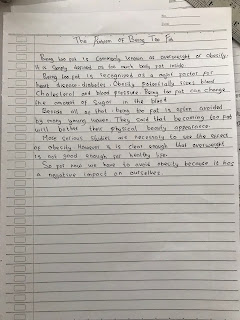 No:
Date:
The Reason of Being Too Fat
Being too fat is commonly known as overweight or obesity.
It is simply defined as too much body fat inside.
Being too fat is recognized as a major factor for
heart disease diabetes Obesity potentially rised blood
cholesterol and blood pressure Being too fat can change
the amount of sugar in the blood
Beside all of that being too fat is often avoided
by many young women. They said that becoming too fat
will bother their physical beauty appearance.
More serious studies are necessary to see the effect
of obesity However, is is clear enough that overweight
is not good enough for healthy life.
So for now we have to avoid obesity because it has
a negative impact on ourselves.